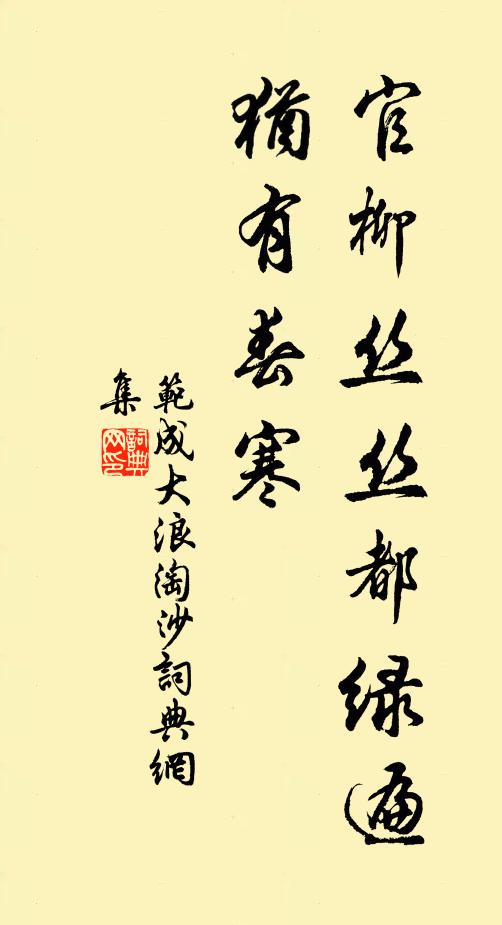 官柳丝丝都绿遍
猶有春寒
範成大浪淘沙詞典網
集
詞典
网印